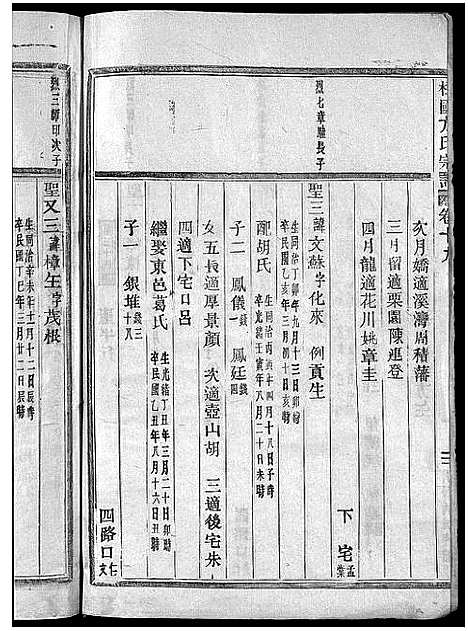 次月嬌適溪灣周積藩
三月留適栗園陳進登
四月龍適花川姚章圭
下宅孟棠
烈七章驗長子
聖三諱文蘇字化來 例貢生
生同治丁卯年九月十三日卯時
卒民國乙亥年三月初十日亥時
配胡氏
生同治丙寅年四月十八日子時
卒光緒壬寅年八月二十日未時
子二 鳳儀錢一 鳳廷錢四
女五長適厚景顏 次適壺山胡 三適後宅朱
四適下宅口呂
繼娶東邑葛氏
生光緒丁丑年三月二十日卯時
卒民國乙丑年八月十六日丑時
子一 銀堆錢三十八
四路口
烈三 次子
聖又三諱樟生字茂根
生同治辛未年十一月十二日辰時
卒民國丁巳年三月廿二日辰時